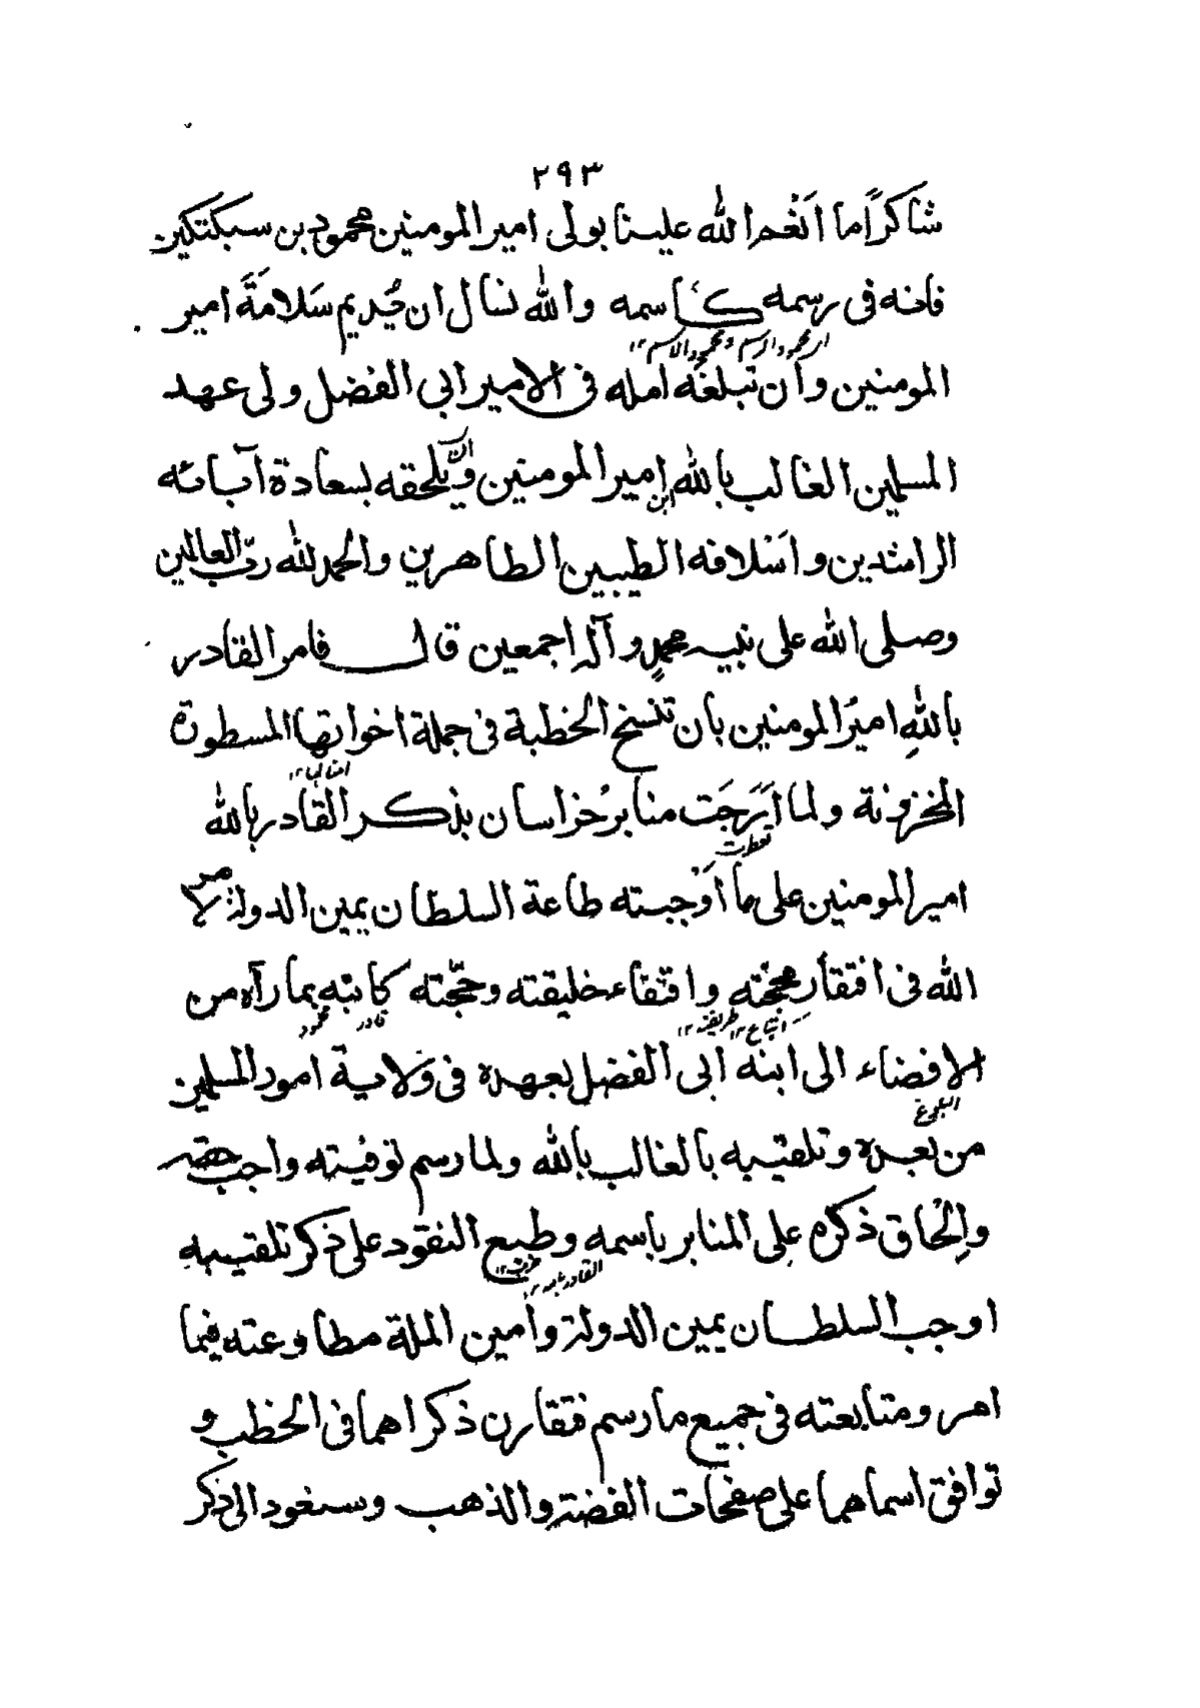 ٢٩٣
شاكرًا ما اَنْعم الله علينا بولى امير المومنين محمود بن سبكتكين
فانه فى رسمه كاسمه والله نسال ان يُديم سَلامَةَ امير
اى محمود الرسم ومحمود الاسم ١٢
المومنين وان تبلغه امله فى الامير ابى الفضل ولى عهد
المسلمين الغالب بالله ابن امير المومنين وان يلحقه بسعادة آبائه
الراشدين واَسْلافه الطيبين الطاهرين والحمد لله ربّ العالمين
وصلى الله على نبيه محمدٍ وآله اجمعين قال فامر القادر
باللهِ اميرُ المومنين بان تنسخ الخطبة فى جملة اخواتها المسطورة
امثالها ١٢
المخزونة ولما اَرِجَت منابر خُراسان بذكر القادر بالله
تعطرت
امير المومنين على ما اَوْجبته طاعة السلطان يمين الدولة لامر
الله فى افتقار محجّته واقتفاء خليقته وحجّته كاتبه بما رآه من
اتباع ١٢ طريقة ١٢ قادر محمود
الافضاء الى ابنه ابى الفضل بعهده فى وَلاية امور المسلمين
البلوغ
من بعده وتلقيبه بالغالب بالله ولما رسم توفيته واجب حقه
واِلْحاق ذكره على المنابر باسمه وطبع النقود على ذكر تلقيبه
ضرب ١٢ القادر بالله ١٢
اوجب السلطان يمين الدولة وامين الملة مطاوعته فيما
امر ومتابعته فى جميع ما رسم فتقارن ذكراهما فى الخطب و
توافق اسماهما على صفحات الفضة والذهب وسنعود الى ذكر